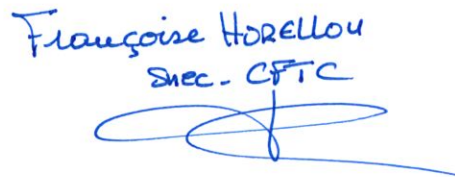 Françoise HORELLOU
Snec - CFTC